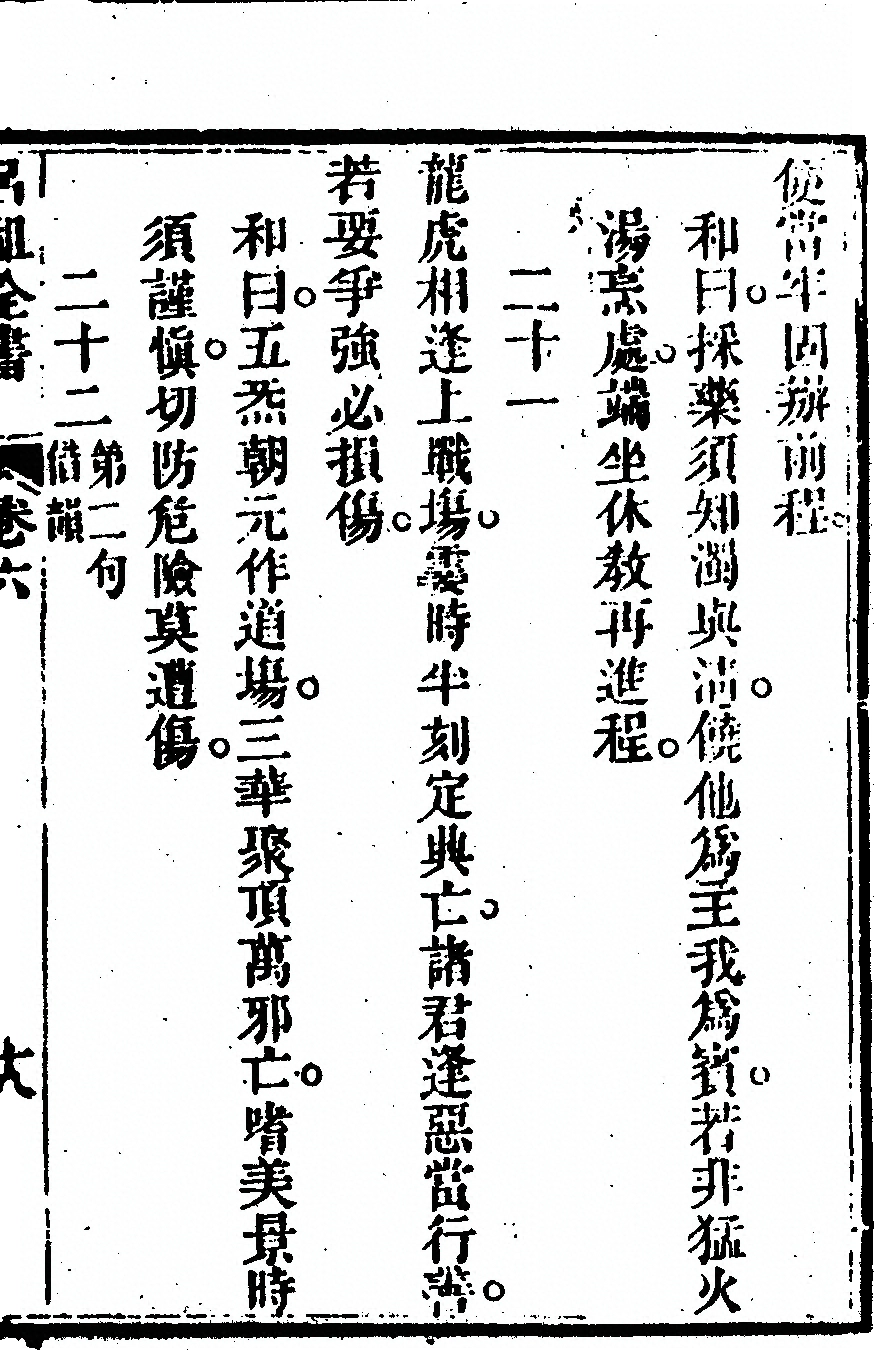 便當年固辦前程。
和曰。採藥須知濁與清。饒他爲主我爲賓。若非猛火
湯烹處。端坐休教再進程。
二十一
龍虎相逢上戰塲。霎時半刻定興亡。諸君逢惡當行善。
若要爭強必損傷。
和曰。五炁朝元作道塲。三華聚頂萬邪亡。嗜美景時
須謹愼。切防危險莫遭傷。
二十二 第二句借韻
呂祖全書 卷六